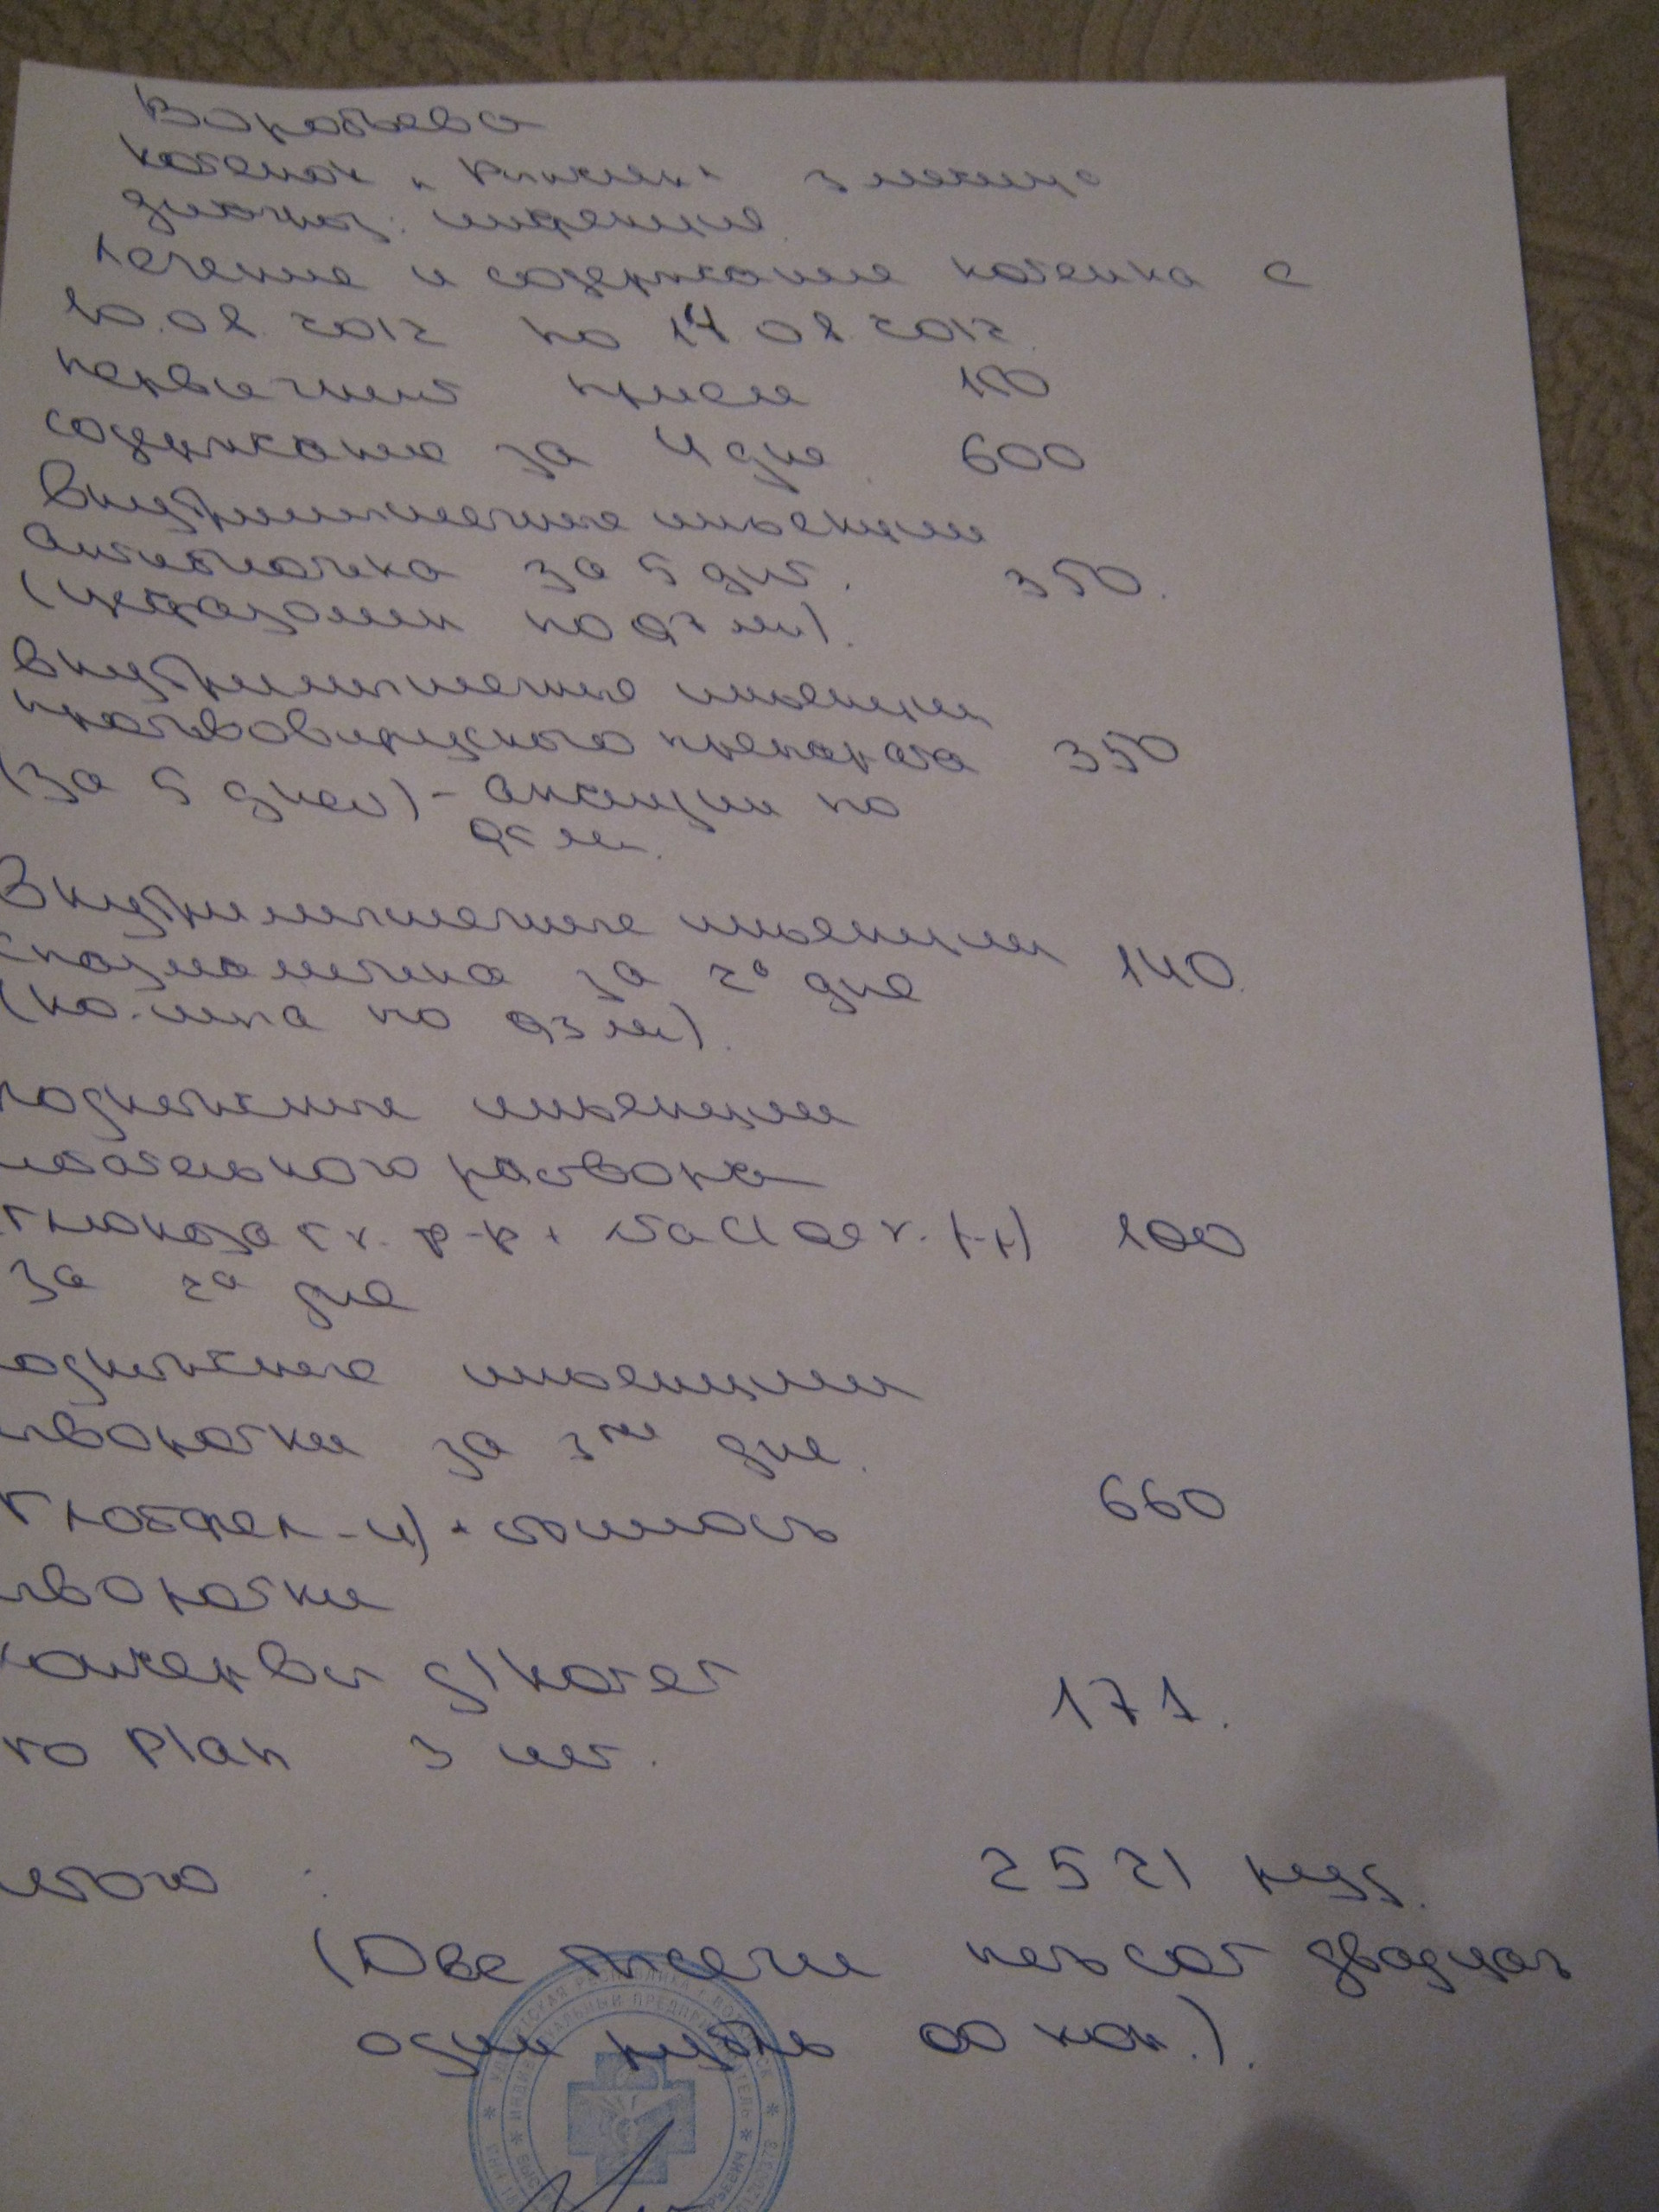 Воробьева
котенок " " 3 месяца
диагноз: инфекция
лечение и содержание котенка с
10.08.2012 по 14.08.2012
первичный прием 100
содержание за 4 дня 600
внутримышечные инъекции
антибиотика за 5 дней. 350.
(цефтазолин по 0,2 мл).
внутримышечные инъекции
противовирусного препарата 350
(за 5 дней) - анандин по
0,5 мл.
Внутримышечные инъекции 140.
спазмолитика за 2а дня
(но-шпа по 0,3 мл).
подкожные инъекции
питательного раствора
глюкоза 5% р-р + NaCl 0,9%. р-р) 100
за 2а дня
одкожные инъекции
ыворотки за 3ри дня.
Глобфел-4) + стоимость 660
ыворотки
консервы д/котят 171.
ro Plan 3 шт.
итого : 2521 руб.
(Две тысячи пятьсот двадцать
один рубль 00 коп.).
УДМУРТСКАЯ РЕСПУБЛИКА г. ВОТКИНСК
ИНДИВИДУАЛЬНЫЙ ПРЕДПРИНИМАТЕЛЬ